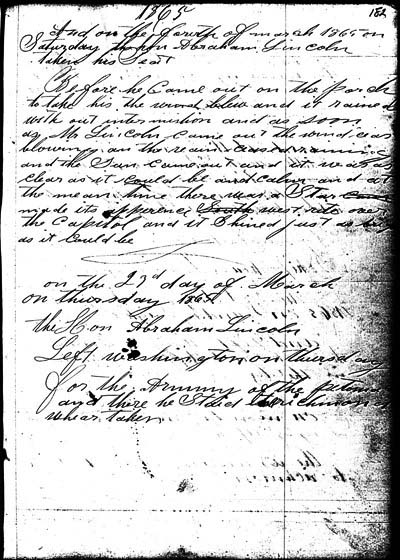 1865
182
And on the fourth of march 1865 on
Saturday Abraham Lincoln
taken his Seat
Before he Came out on the porch
to take his the wind blew and it rained
with out intermishion and as soon
as Mr Lincoln came out the wind ceas
blowing an the rain ceased raining
and the Sun came out and it was as
clear as it could be and calm and at
the mean time there was a Star
made its apperence South west rite over
the Capitol and it Shined just as bri
as it could be
on the 23d day of March
on thursday 1865
the Hon Abraham Lincoln
Left washington on thursday
for the Ammy of the potom
and there he Staid
whear taken